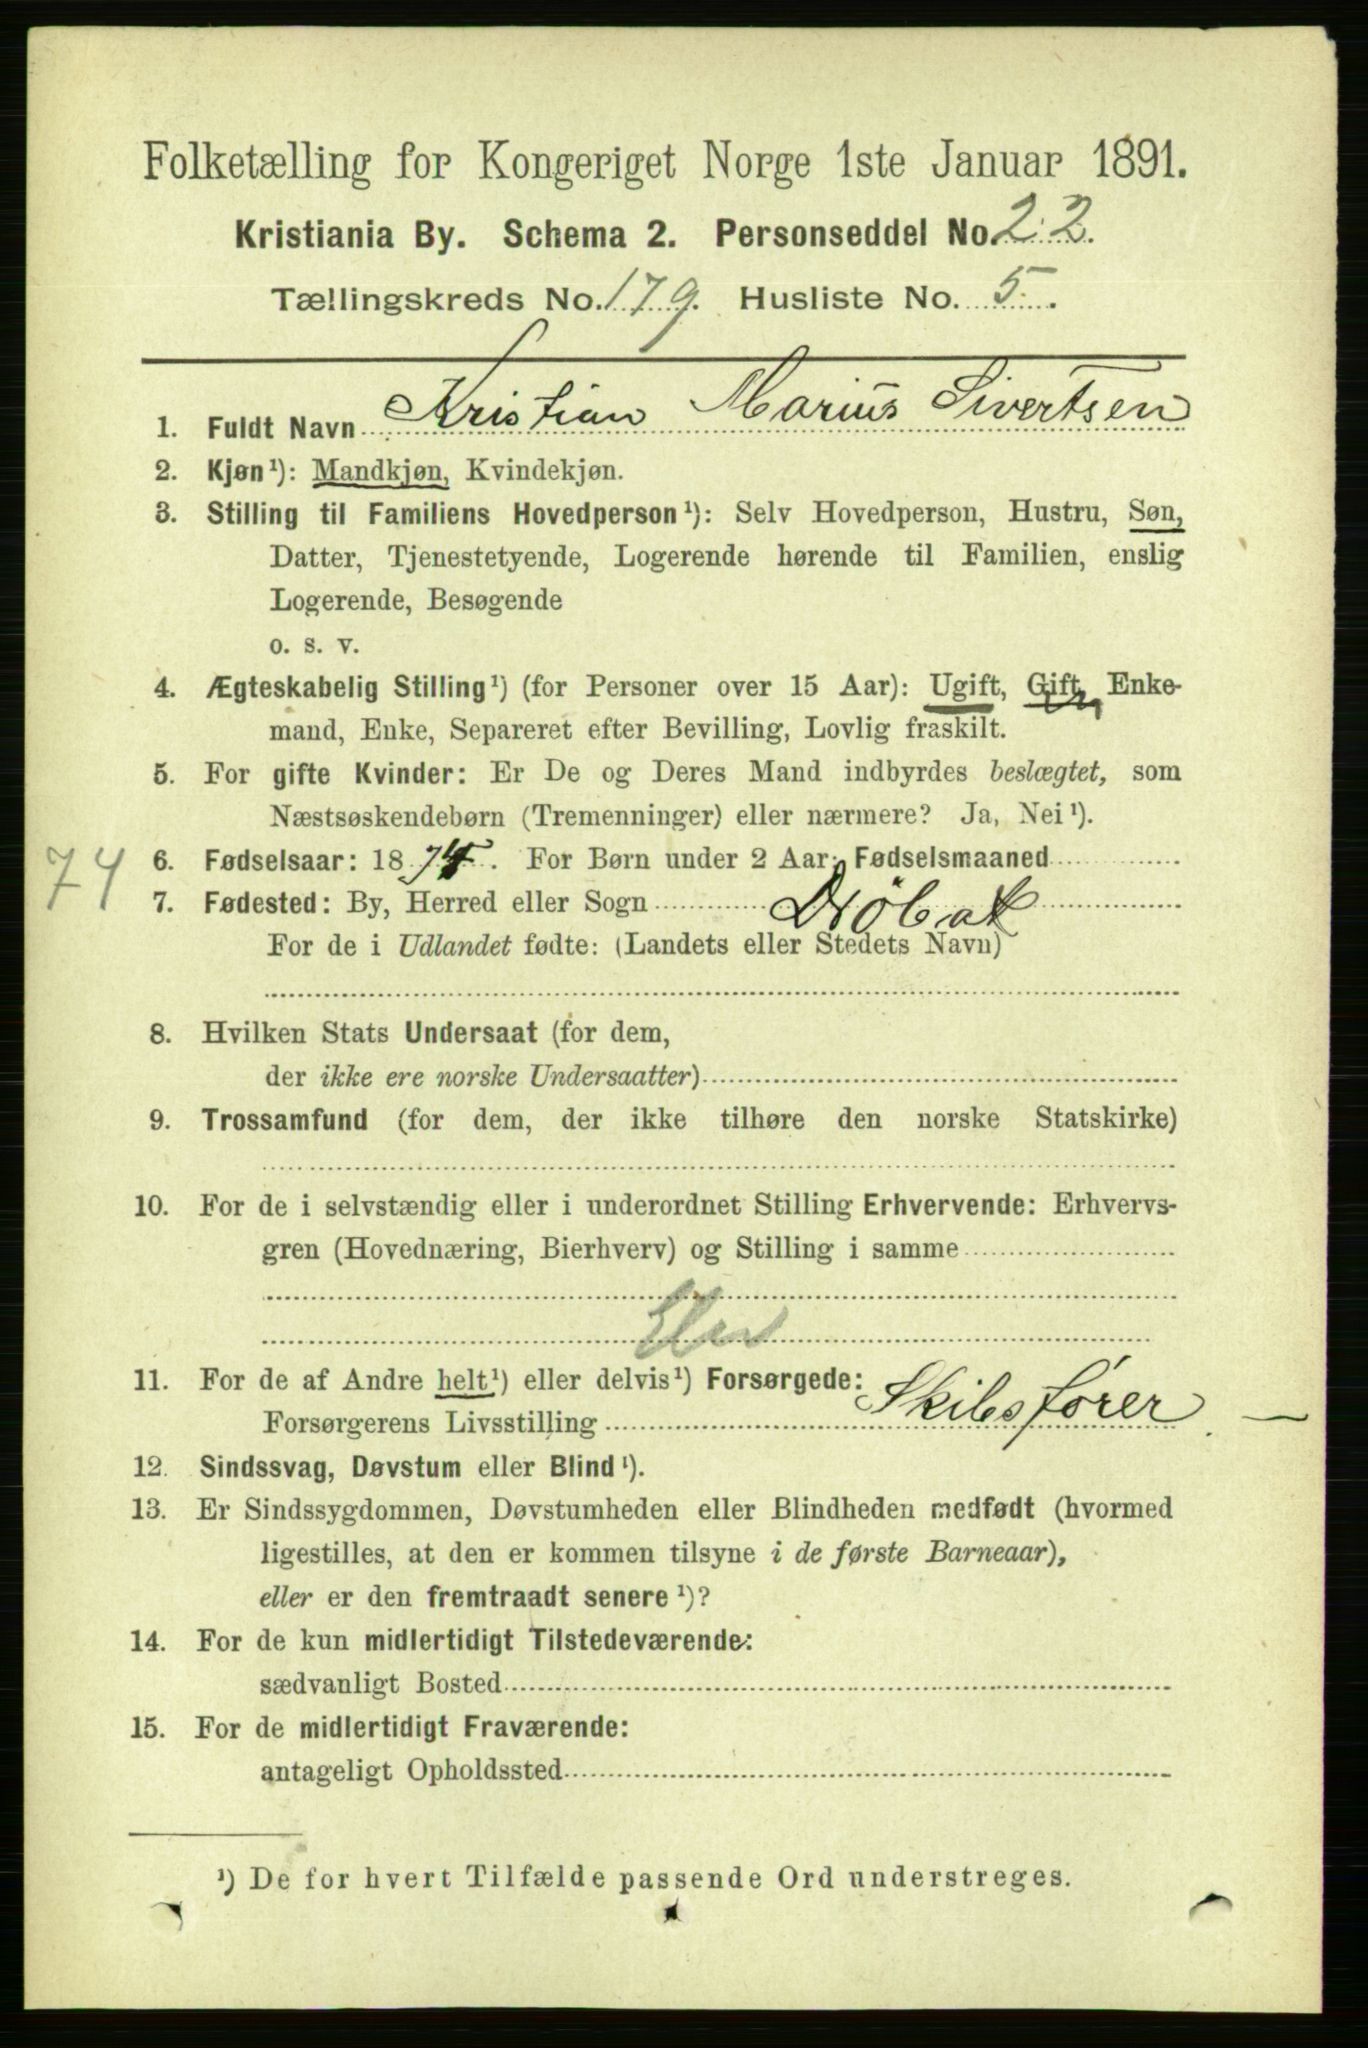 Folketælling for Kongeriget Norge 1ste Januar 1891.
Kristiania By. Schema 2. Personseddel No. 22.
Tællingskreds No. 179. Husliste No. 5.
1. Fuldt Navn Kristian Marius Sivertsen
2. Kjøn¹): Mandkjøn, Kvindekjøn.
3. Stilling til Familiens Hovedperson¹): Selv Hovedperson, Hustru, Søn,
Datter, Tjenestetyende, Logerende hørende til Familien, enslig
Logerende, Besøgende
o. s. v.
4. Ægteskabelig Stilling¹) (for Personer over 15 Aar): Ugift, Gift, Enke-
mand, Enke, Separeret efter Bevilling, Lovlig fraskilt.
5. For gifte Kvinder: Er De og Deres Mand indbyrdes beslægtet, som
Næstsøskendebørn (Tremenninger) eller nærmere? Ja, Nei¹).
74 6. Fødselsaar: 1874. For Børn under 2 Aar: Fødselsmaaned
7. Fødested: By, Herred eller Sogn Drøbak
For de i Udlandet fødte: (Landets eller Stedets Navn)
8. Hvilken Stats Undersaat (for dem,
der ikke ere norske Undersaatter)
9. Trossamfund (for dem, der ikke tilhøre den norske Statskirke)
10. For de i selvstændig eller i underordnet Stilling Erhvervende: Erhvervs-
gren (Hovednæring, Bierhverv) og Stilling i samme
Elev
11. For de af Andre helt¹) eller delvis¹) Forsørgede:
Forsørgerens Livsstilling Skibsfører
12. Sindssvag, Døvstum eller Blind¹).
13. Er Sindssygdommen, Døvstumheden eller Blindheden medfødt (hvormed
ligestilles, at den er kommen tilsyne i de første Barneaar),
eller er den fremtraadt senere¹)?
14. For de kun midlertidigt Tilstedeværende:
sædvanligt Bosted
15. For de midlertidigt Fraværende:
antageligt Opholdssted
¹) De for hvert Tilfælde passende Ord understreges.